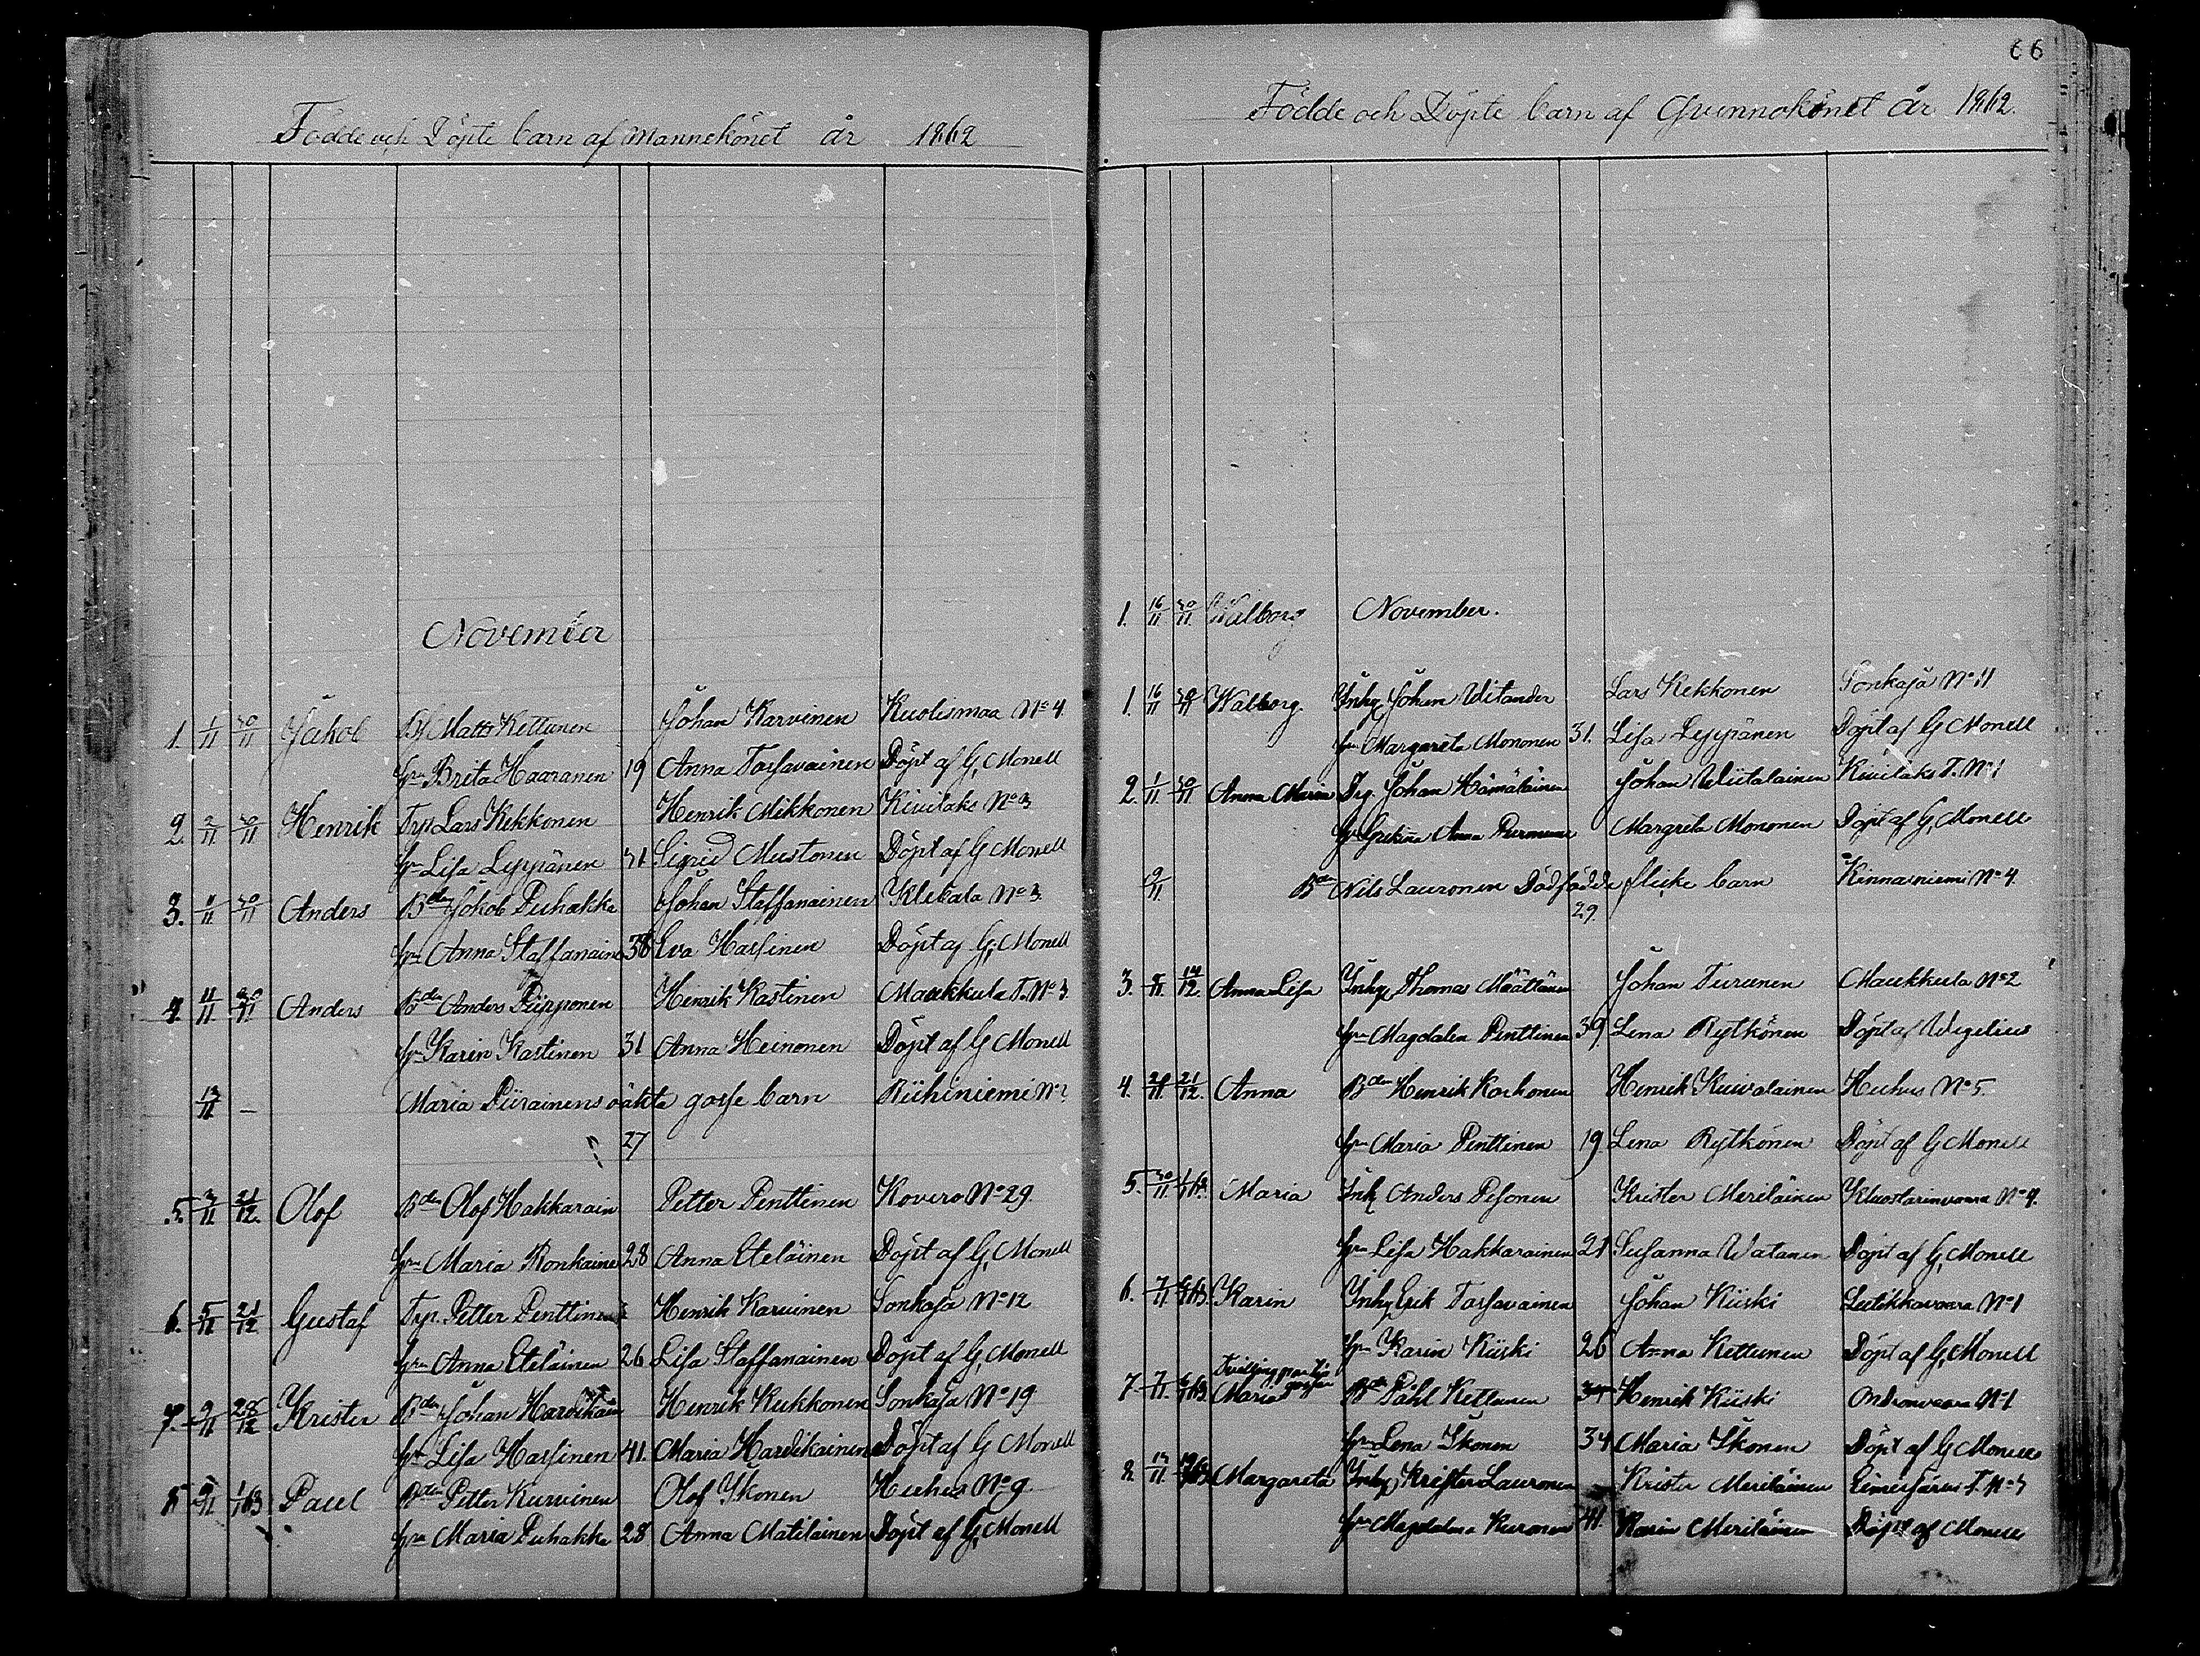 Födde och Döpte barn af Mannekönet år 1862
November
1. 1/11 30/11 Jakob Bf Matts Kettunen Johan Karvinen Kuolismaa No 4
hu Brita Haaranen 19 Anna Tarfvainen Döpt af G, Monell
2. 2/11 30/11 Henrik Trp. Lars Kekkonen Henrik Mikkonen Kivilaks No 3
hu Lisa Leppänen 31 Sigrid Mustonen Döpt af G Monell
3. 30/11 Anders Bden Jokob Puhakka Johan Staffanainen No 3.
hu Anna Staffanaine 38 Eva Harfinen Döpt af G, Monell
4. 11/11 30/11 Anders Bden Anders Piipponen Henrik Kastinen Maukkula T. No 3.
hu Karin Kastinen 31 Anna Heinonen Döpt af G Monell
13/11 – Maria Piirainens oäkta gosse barn Riihiniemi No
27
5. 3/11 21/12. Olof Bden Olof Hakkarain Petter Penttinen Kovero No 29
hu Maria Ronkaine 28 Anna Eteläinen Döpt af G, Monell
6. 5/11 21/12 Gustaf Trp. Petter Penttinen Henrik Karvinen Sonkaja No 12
hu Anna Eteläinen 26 Lisa Staffanainen Döpt af G, Monell
7. 9/11 28/12 Krister Bden Johan Hardikain Henrik Kukkonen Sonkaja No 19
hu Lisa Harfinen 41. Maria Hardikainen Döpt af G Monell
8 1/1 63 Paul Bden Petter Kurvinen Olof Ikonen Huhus No 9
hu Maria Puhakka 28 Anna Matilainen Döpt af G, Monell
66
Födde och Döpte barn af Qvinnokönet år 1862.
1. 16/11 30/11 Walborg November.
1. 16/11 30/11 Walborg. Inhy Johan Witander Lars Kekkonen Sonkaja No 11
hu Margareta Mononen 31. Lisa Leppänen Döpt af G Monell
2. 1/11 30/11 Anna Maria Drg. Johan Hämäläinen Johan Wiitalainen Kivilaks T. No 1
Anna Purmunen Margreta Mononen Döpt af G, Monell
9/11 Bden Nils Lauronen Dödfödde flicke barn Kinnasniemi No 4.
29.
3. 14/12. Anna Lisa Inhy Thomas Määttänen Johan Turunen Maukkula No 2
hu Magdalen Penttinen 39 Lena Rytkönen Döpt af Wegelius
4. 21/12. Anna Bden Henrik Korhonen Henrik Kuivalainen Huhus No 5.
hu Maria Penttinen 19 Lena Rytkönen Döpt af G Monell
5. 30/11 1/1 63. Maria Inh Anders Pesonen Krister Meriläinen Kluostarinvaara No 4.
hu Lisa Hakkarainen 21 Susanna Watanen Döpt af G, Monell
6. 7/11 6/1 63. Karin Inhy Erik Tarfvainen Johan Kiiski Lutikkavaara No 1
hu Karin Kiiski 26 Anna Kettunen Döpt af G, Monell
7. 7/11 6/1 63. Maria Bden Påhl Kettunen Henrik Kiiski Ondronvaara No 1
hu Lena Ikonen 34 Maria Ikonen Döpt af G Monell
8 Margareta Inhy Krister Lauronen Krister Meriläinen T. No 3
hu Magdalena Kuronen 41. Karin Meriläinen Döpt af Monell